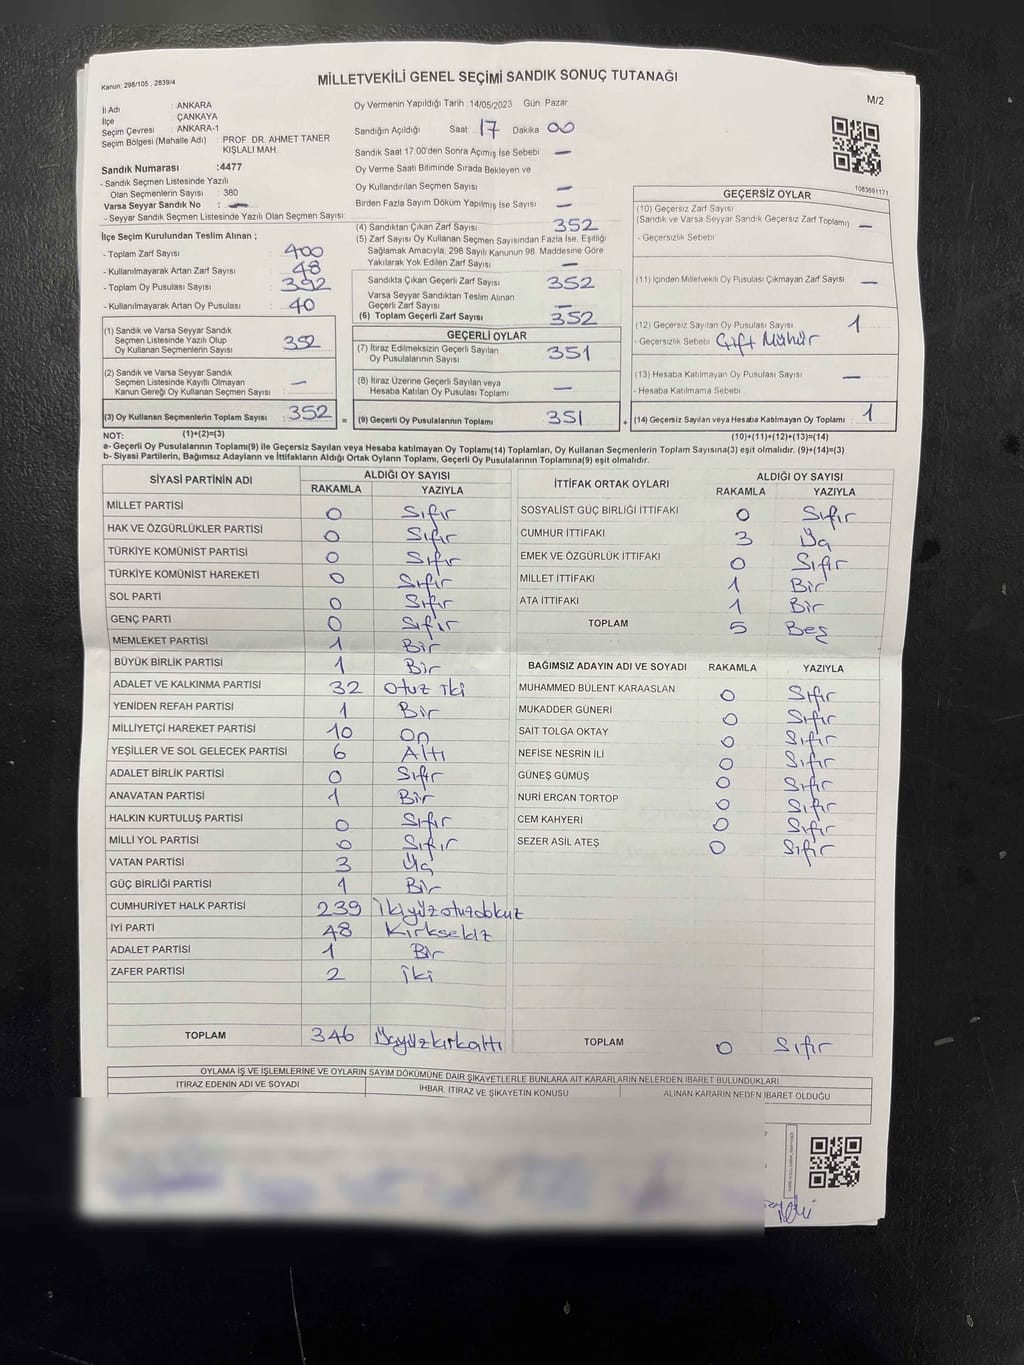 MİLLETVEKİLİ GENEL SEÇİMİ SANDIK SONUÇ TUTANAĞI
Kanun: 298/105 , 2839/4
M/2
İl Adı : ANKARA
İlçe : ÇANKAYA
Seçim Çevresi : ANKARA-1
Seçim Bölgesi (Mahalle Adı) : PROF. DR. AHMET TANER
KIŞLALI MAH.
Sandık Numarası :4477
- Sandık Seçmen Listesinde Yazılı
Olan Seçmenlerin Sayısı : 380
Varsa Seyyar Sandık No : —
- Seyyar Sandık Seçmen Listesinde Yazılı Olan Seçmen Sayısı:
İlçe Seçim Kurulundan Teslim Alınan ;
- Toplam Zarf Sayısı : 400
- Kullanılmayarak Artan Zarf Sayısı : 48
- Toplam Oy Pusulası Sayısı : 392
- Kullanılmayarak Artan Oy Pusulası : 40
(1) Sandık ve Varsa Seyyar Sandık
Seçmen Listesinde Yazılı Olup
Oy Kullanan Seçmenlerin Sayısı : 352
(2) Sandık ve Varsa Seyyar Sandık
Seçmen Listesinde Kayıtlı Olmayan
Kanun Gereği Oy Kullanan Seçmen Sayısı : —
(3) Oy Kullanan Seçmenlerin Toplam Sayısı : 352
(1)+(2)=(3)
Oy Vermenin Yapıldığı Tarih :14/05/2023 Gün Pazar
Sandığın Açıldığı Saat : 17 Dakika 00
Sandık Saat 17:00'den Sonra Açılmış İse Sebebi —
Oy Verme Saati Bitiminde Sırada Bekleyen ve
Oy Kullandırılan Seçmen Sayısı —
Birden Fazla Sayım Döküm Yapılmış İse Sayısı —
(4) Sandıktan Çıkan Zarf Sayısı : 352
(5) Zarf Sayısı Oy Kullanan Seçmen Sayısından Fazla İse, Eşitliği
Sağlamak Amacıyla, 298 Sayılı Kanunun 98. Maddesine Göre
Yakılarak Yok Edilen Zarf Sayısı : —
Sandıkta Çıkan Geçerli Zarf Sayısı : 352
Varsa Seyyar Sandıktan Teslim Alınan
Geçerli Zarf Sayısı —
(6) Toplam Geçerli Zarf Sayısı : 352
GEÇERLİ OYLAR
(7) İtiraz Edilmeksizin Geçerli Sayılan
Oy Pusulalarının Sayısı : 351
(8) İtiraz Üzerine Geçerli Sayılan veya
Hesaba Katılan Oy Pusulası Toplamı : —
= (9) Geçerli Oy Pusulalarının Toplamı 351
GEÇERSİZ OYLAR
1083691171
(10) Geçersiz Zarf Sayısı
(Sandık ve Varsa Seyyar Sandık Geçersiz Zarf Toplamı) —
- Geçersizlik Sebebi :
(11) İçinden Milletvekili Oy Pusulası Çıkmayan Zarf Sayısı : —
(12) Geçersiz Sayılan Oy Pusulası Sayısı : 1
- Geçersizlik Sebebi Çift Mühür
(13) Hesaba Katılmayan Oy Pusulası Sayısı : —
- Hesaba Katılmama Sebebi :
+ (14) Geçersiz Sayılan veya Hesaba Katılmayan Oy Toplamı : 1
(10)+(11)+(12)+(13)=(14)
NOT:
a- Geçerli Oy Pusulalarının Toplamı(9) ile Geçersiz Sayılan veya Hesaba katılmayan Oy Toplamı(14) Toplamları, Oy Kullanan Seçmenlerin Toplam Sayısına(3) eşit olmalıdır. (9)+(14)=(3)
b- Siyasi Partilerin, Bağımsız Adayların ve İttifakların Aldığı Ortak Oyların Toplamı, Geçerli Oy Pusulalarının Toplamına(9) eşit olmalıdır.
SİYASİ PARTİNİN ADI ALDIĞI OY SAYISI
RAKAMLA YAZIYLA
MİLLET PARTİSİ 0 Sıfır
HAK VE ÖZGÜRLÜKLER PARTİSİ 0 Sıfır
TÜRKİYE KOMÜNİST PARTİSİ 0 Sıfır
TÜRKİYE KOMÜNİST HAREKETİ 0 Sıfır
SOL PARTİ 0 Sıfır
GENÇ PARTİ 0 Sıfır
MEMLEKET PARTİSİ 1 Bir
BÜYÜK BİRLİK PARTİSİ 1 Bir
ADALET VE KALKINMA PARTİSİ 32 Otuz iki
YENİDEN REFAH PARTİSİ 1 Bir
MİLLİYETÇİ HAREKET PARTİSİ 10 On
YEŞİLLER VE SOL GELECEK PARTİSİ 6 Altı
ADALET BİRLİK PARTİSİ 0 Sıfır
ANAVATAN PARTİSİ 1 Bir
HALKIN KURTULUŞ PARTİSİ 0 Sıfır
MİLLİ YOL PARTİSİ 0 Sıfır
VATAN PARTİSİ 3 Üç
GÜÇ BİRLİĞİ PARTİSİ 1 Bir
CUMHURİYET HALK PARTİSİ 239 İkiyüzotuzdokuz
İYİ PARTİ 48 Kırksekiz
ADALET PARTİSİ 1 Bir
ZAFER PARTİSİ 2 İki
TOPLAM 346 Üçyüzkırkaltı
İTTİFAK ORTAK OYLARI ALDIĞI OY SAYISI
RAKAMLA YAZIYLA
SOSYALİST GÜÇ BİRLİĞİ İTTİFAKI 0 Sıfır
CUMHUR İTTİFAKI 3 Üç
EMEK VE ÖZGÜRLÜK İTTİFAKI 0 Sıfır
MİLLET İTTİFAKI 1 Bir
ATA İTTİFAKI 1 Bir
TOPLAM 5 Beş
BAĞIMSIZ ADAYIN ADI VE SOYADI RAKAMLA YAZIYLA
MUHAMMED BÜLENT KARAASLAN 0 Sıfır
MUKADDER GÜNERİ 0 Sıfır
SAİT TOLGA OKTAY 0 Sıfır
NEFİSE NESRİN İLİ 0 Sıfır
GÜNEŞ GÜMÜŞ 0 Sıfır
NURİ ERCAN TORTOP 0 Sıfır
CEM KAHYERİ 0 Sıfır
SEZER ASİL ATEŞ 0 Sıfır
TOPLAM 0 Sıfır
OYLAMA İŞ VE İŞLEMLERİNE VE OYLARIN SAYIM DÖKÜMÜNE DAİR ŞİKAYETLERLE BUNLARA AİT KARARLARIN NELERDEN İBARET BULUNDUKLARI
İTİRAZ EDENİN ADI VE SOYADI İHBAR, İTİRAZ VE ŞİKAYETİN KONUSU ALINAN KARARIN NEDEN İBARET OLDUĞU